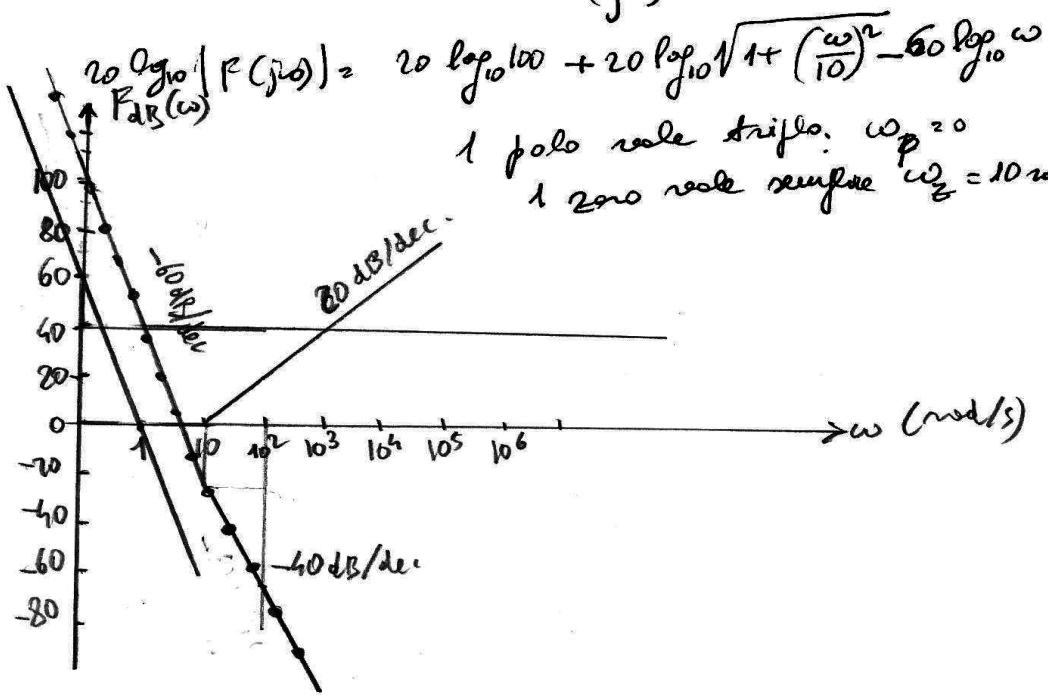 (j
20 log₁₀|F(jω)| = 20 log₁₀100 + 20 log₁₀√(1+(ω/10)²) - 60 log₁₀ω
F_dB(ω)
1 polo reale triplo. ω_p=0
1 zero reale semplice ω_z=10
100
80
60
40
20
0
-20
-40
-60
-80
-60dB/dec
20 dB/dec.
1 10 10² 10³ 10⁴ 10⁵ 10⁶
ω (rad/s)
-40dB/dec